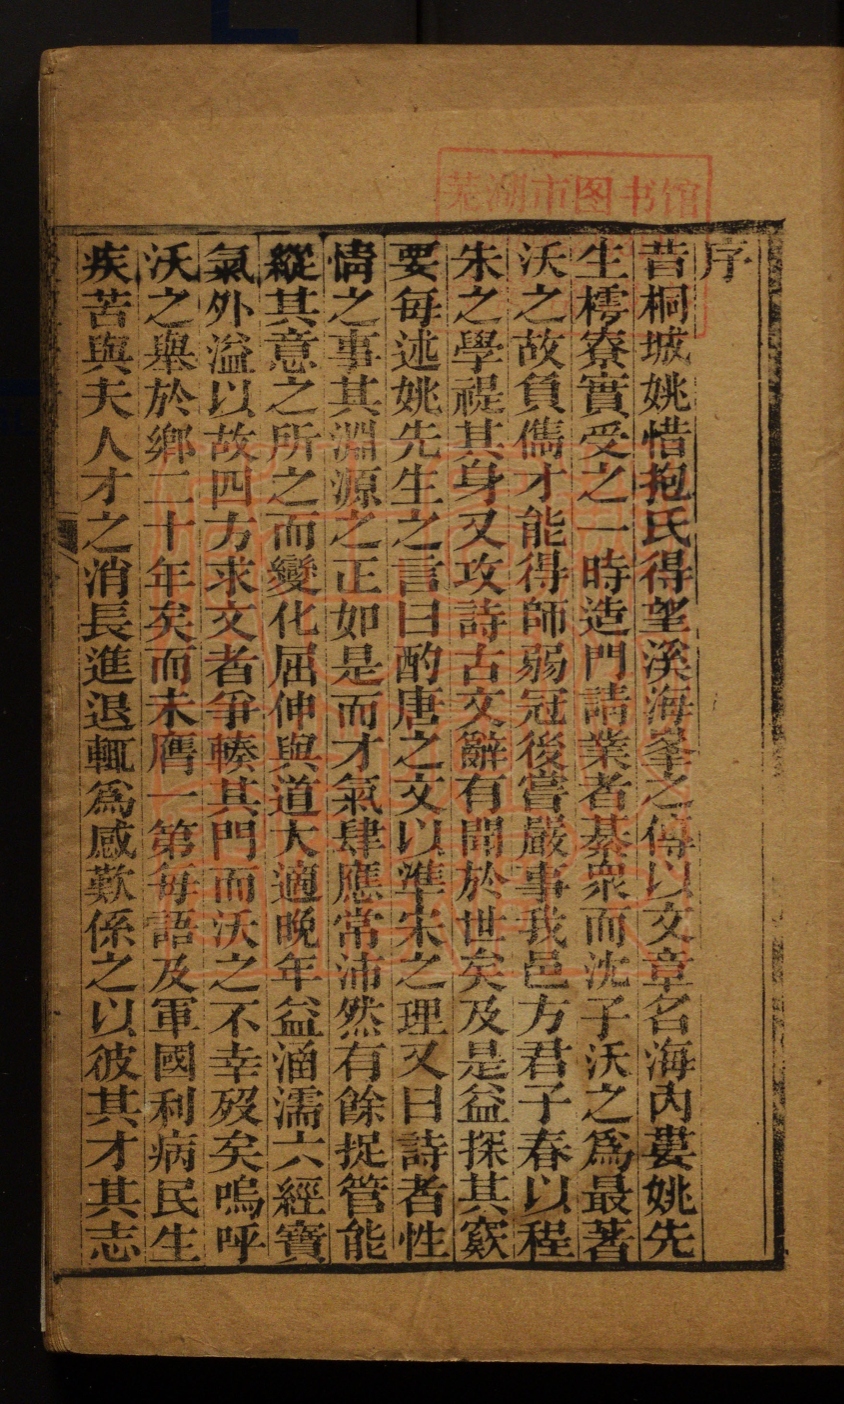 芜湖市图书馆
序
昔桐城姚惜抱氏得望溪海峯之傳以文章名海內婁姚先
生樗寮實受之一時造門請業者綦衆而沈子沃之爲最著
沃之故負儁才能得師弱冠後嘗嚴事我邑方君子春以程
朱之學禔其身又攻詩古文辭有聞於世矣及是益探其窾
要每述姚先生之言曰酌唐之文以準宋之理又曰詩者性
情之事其淵源之正如是而才氣肆應常沛然有餘捉管能
縱其意之所之而變化屈伸與道大適晚年益涵濡六經寶
氣外溢以故四方求文者爭輳其門而沃之不幸歿矣嗚呼
沃之舉於鄉二十年矣而未膺一第每語及軍國利病民生
疾苦與夫人才之消長進退輒爲感歎係之以彼其才其志